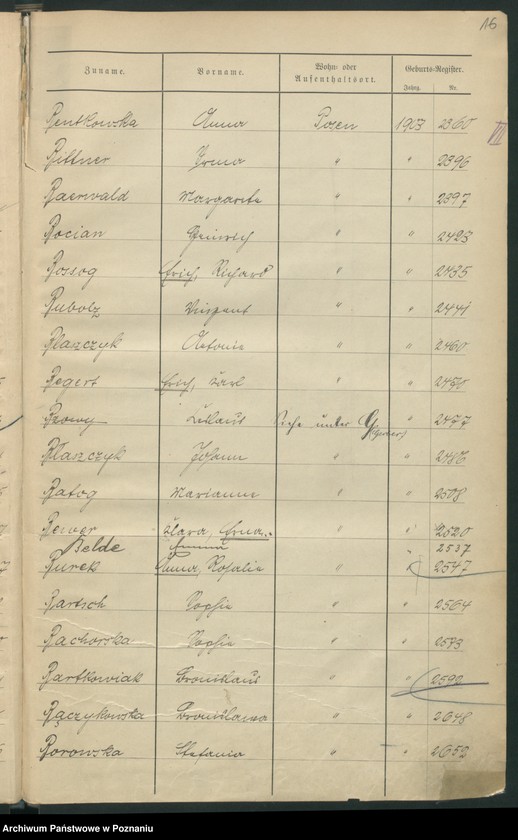 16
Zuname. Vorname. Wohn- oder Aufenthaltsort. Geburts-Register.
Jahrg. Nr.
Bentkowska Anna Posen 1903 2360 VII
Bittner Irma " " 2396
Baerwald Margarete " " 2397
Bocian Heinrich " " 2423
Bossog Erich, Richard " " 2435
Bubolz Vinzent " " 2441
Blaszczyk Antonie " " 2460
Begert Erich, Karl " " 2470
Siehe unter G " 2477
Blaszczyk Johann " " 2486
Batog Marianne " " 2508
Beyer Klara, Erna " " 2520
Belde " 2537
Burek Anna, Rosalie " " 2547
Bartsch Sophie " " 2564
Bachorska Sophie " " 2573
Bartkowiak Bronislaus " " 2592
Bączykowska Bronislawa " " 2648
Borowska Stefania " " 2653
Archiwum Państwowe w Poznaniu